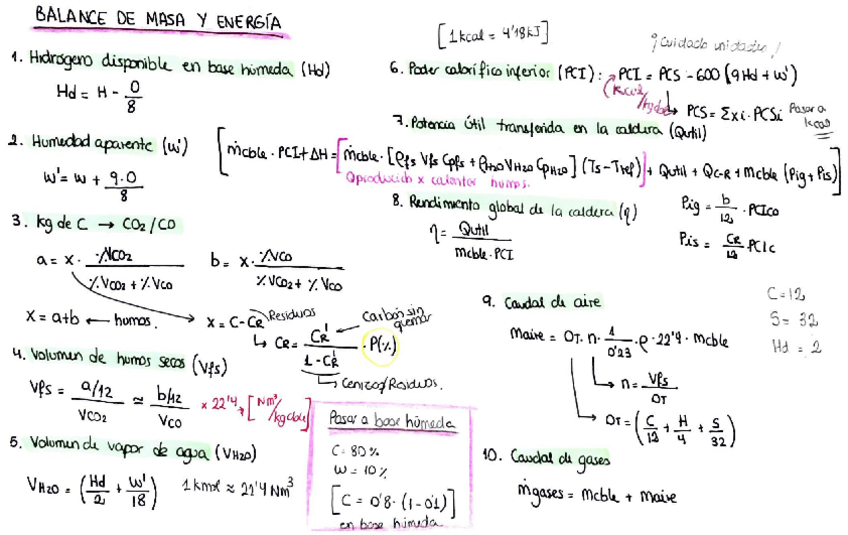 BALANCE DE MASA Y ENERGÍA
[1 kcal = 4'18 kJ]
¡Cuidado unidades!
1. Hidrógeno disponible en base húmeda (Hd)
Hd = H - O/8
2. Humedad aparente (w')
w' = w + 9·O/8
3. kg de C → CO2/CO
a = x · %VCO2 / %VCO2 + %VCO
b = x · %VCO / %VCO2 + %VCO
x = a+b ← humos.
x = C - CR
Residuos
CR = CR' / 1 - CR' · P(%)
Carbón sin quemar
Cenizas/Residuos.
4. Volumen de humos secos (Vfs)
Vfs = a/12 / VCO2 ≃ b/12 / VCO × 22'4 → [Nm³/kgcble]
5. Volumen de vapor de agua (VH2O)
VH2O = (Hd/2 + w'/18)
1 kmol ≈ 22'4 Nm³
Pasar a base húmeda
C = 80%
w = 10%
[C = 0'8 · (1-0'1)]
en base húmeda
6. Poder calorífico inferior (PCI): PCI = PCS - 600 (9Hd + w')
(kcal/kgcble)
PCS = Σxi · PCSi
Pasar a kcal
7. Potencia útil transferida en la caldera (Qutil)
[ṁcble · PCI + ΔH = ṁcble · [ρfs Vfs Cpfs + ρH2O VH2O CpH2O] (Ts - Tref) + Qutil + QC-R + mcble (Pig + Pis)]
Qproducción x calentar humos.
8. Rendimiento global de la caldera (η)
η = Qutil / mcble · PCI
Pig = b/12 · PCIco
Pis = CR/12 PCIc
9. Caudal de aire
C = 12
S = 32
Hd = 2
maire = OT · n · 1/0'23 · ρ · 22'4 · mcble
n = Vfs/OT
OT = (C/12 + H/4 + S/32)
10. Caudal de gases
ṁgases = mcble + maire